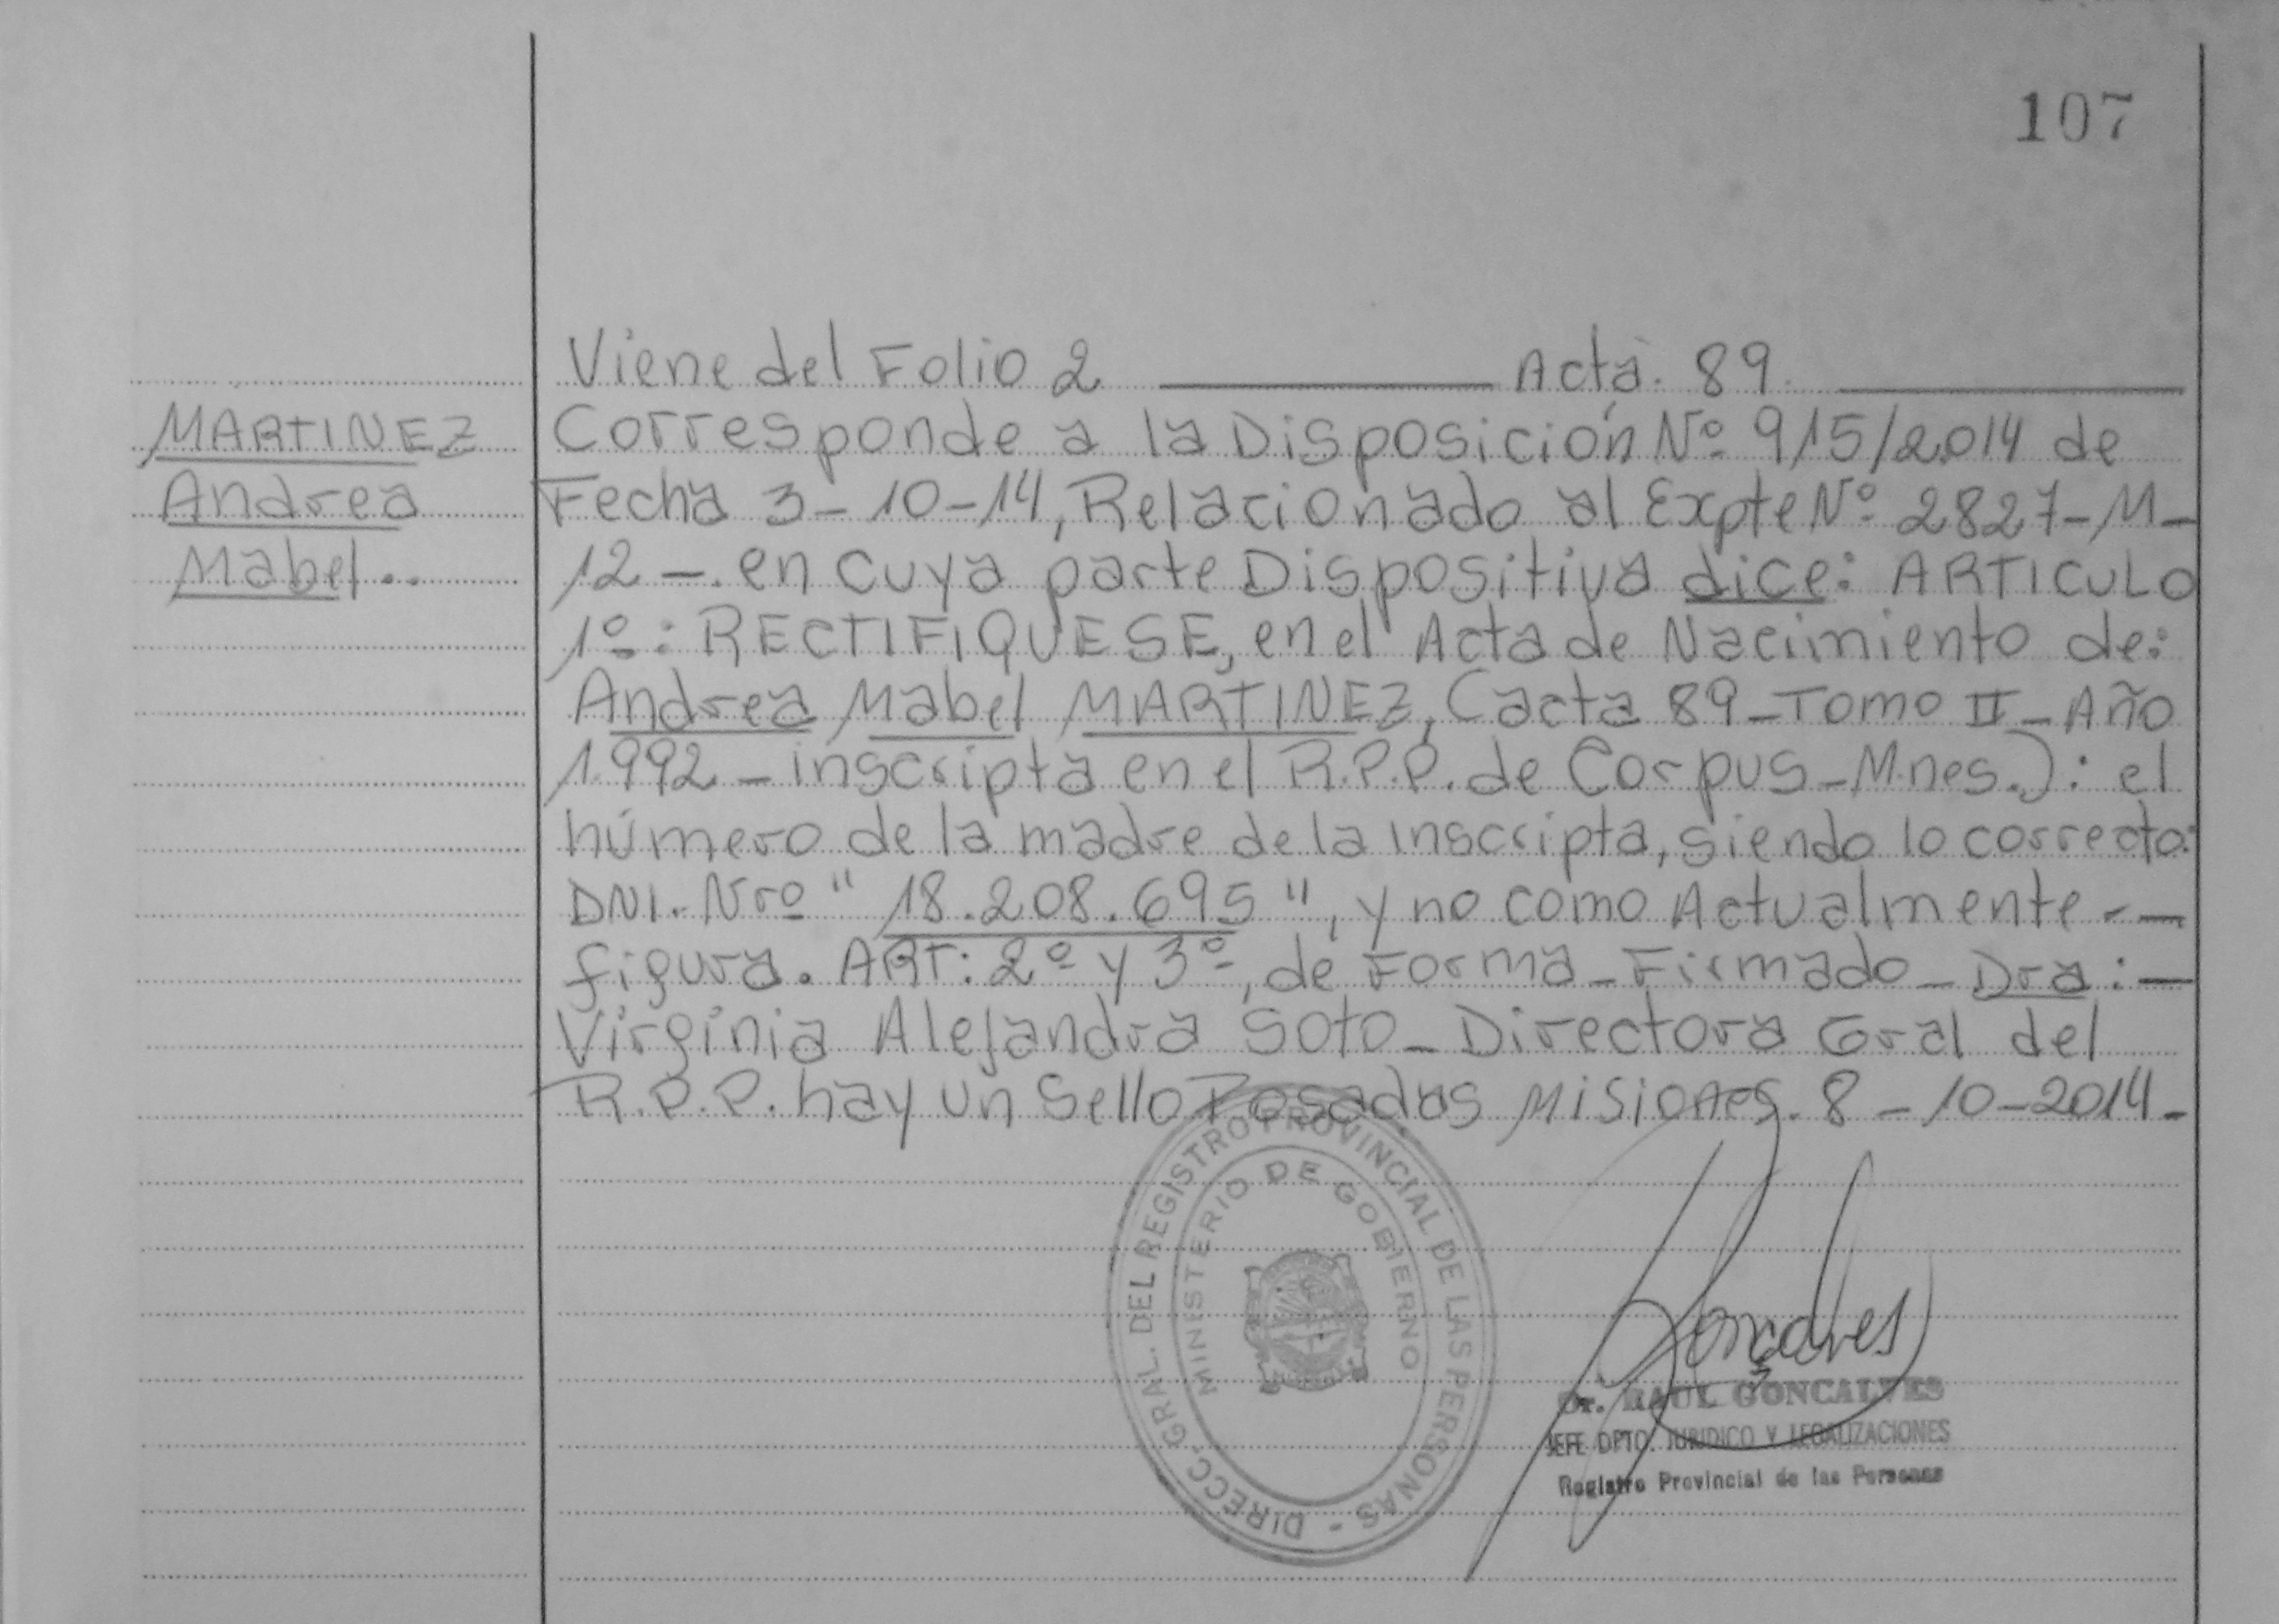 107
Viene del Folio 2 ———— Acta. 89. ————
MARTINEZ
Andrea
Mabel..
Corresponde a la Disposición Nº 915/2014 de
Fecha 3-10-14, Relacionado al Expte Nº 2827-M-
12-. en cuya parte Dispositiva dice: ARTICULO
1º: RECTIFIQUESE, en el Acta de Nacimiento de:
Andrea Mabel MARTINEZ, (acta 89-Tomo II-Año
1.992-inscripta en el R.P.P. de Corpus-Mnes.): el
número de la madre de la inscripta, siendo lo correcto:
DNI. Nro "18.208.695", y no como Actualmente -—
figura. ART: 2º y 3º, de Forma-Firmado-Dra:—
Virginia Alejandra Soto-Directora Gral del
R.P.P. hay un Sello Posadas Misiones. 8-10-2014-
DIRECC. GRAL. DEL REGISTRO PROVINCIAL DE LAS PERSONAS -
MINISTERIO DE GOBIERNO
Gonçalves
Dr. RAUL GONCALVES
JEFE DPTO. JURIDICO Y LEGALIZACIONES
Registro Provincial de las Personas